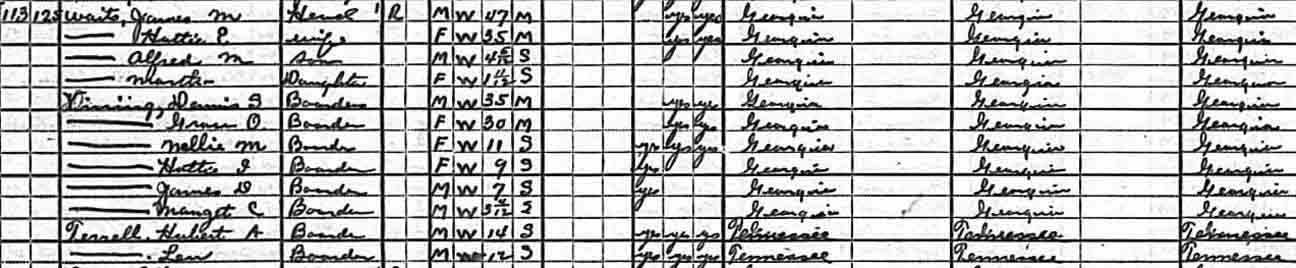 113 125 Waits, James M Head 1 R M W 47 M yes yes Georgia Georgia Georgia
—— Hattie P wife F W 35 M yes yes Georgia Georgia Georgia
—— Alfred M Son M W 4 5/12 S Georgia Georgia Georgia
—— Martha Daughter F W 1 11/12 S Georgia Georgia Georgia
Vinning, Dennis S Boarder M W 35 M yes yes Georgia Georgia Georgia
—— Grace O Boarder F W 30 M yes yes Georgia Georgia Georgia
—— Nellie M Boarder F W 11 S yes yes yes Georgia Georgia Georgia
—— Hattie I Boarder F W 9 S yes Georgia Georgia Georgia
—— James D Boarder M W 7 S yes Georgia Georgia Georgia
—— Manget C Boarder M W 3 4/12 S Georgia Georgia Georgia
Terrell, Hubert A Boarder M W 14 S yes yes yes Tennessee Tennessee Tennessee
—— Len Boarder M W 12 S yes yes yes Tennessee Tennessee Tennessee